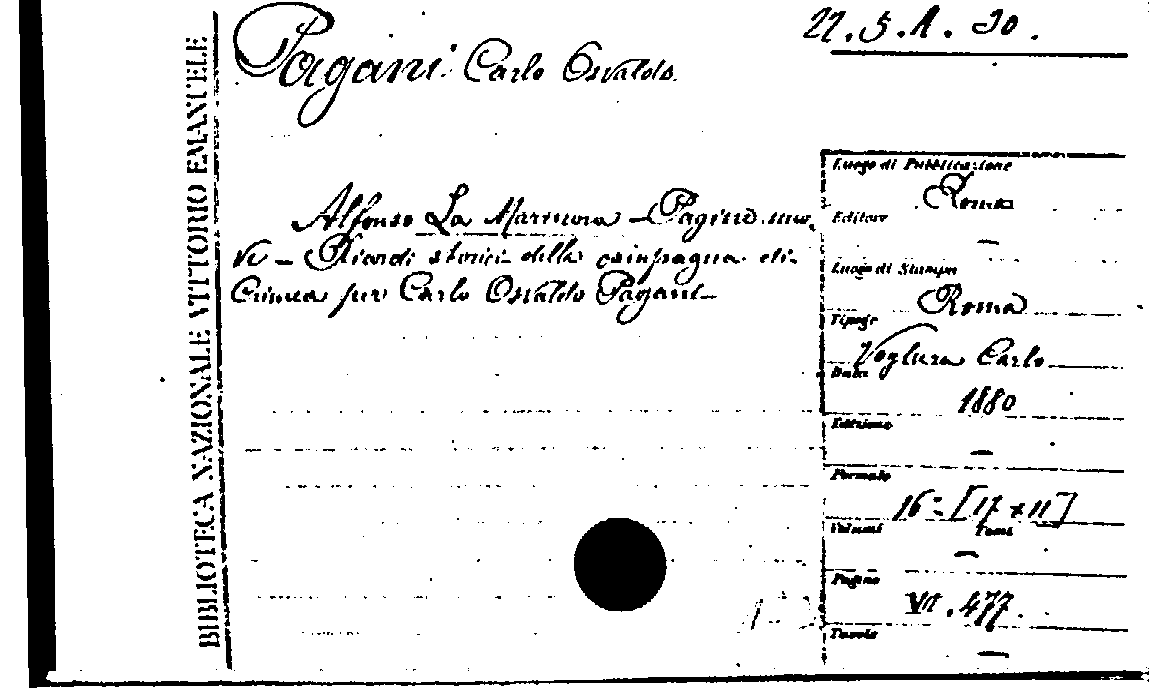 22.5.A.30.
Pagani Carlo Osvaldo.
BIBLIOTECA NAZIONALE VITTORIO EMANUELE
Alfonso La Marmora – Pagine nuo
ve – Ricordi storici della campagna di
Crimea per Carlo Osvaldo Pagani –
Luogo di Pubblicazione
Roma
Editore
—
Luogo di Stampa
Roma
Tipogr
Voghera Carlo
Data
1880
Edizione
—
Formato
16° [17 x 11]
Volumi Tomi
—
Pagine
VI. 477.
Tavole
—